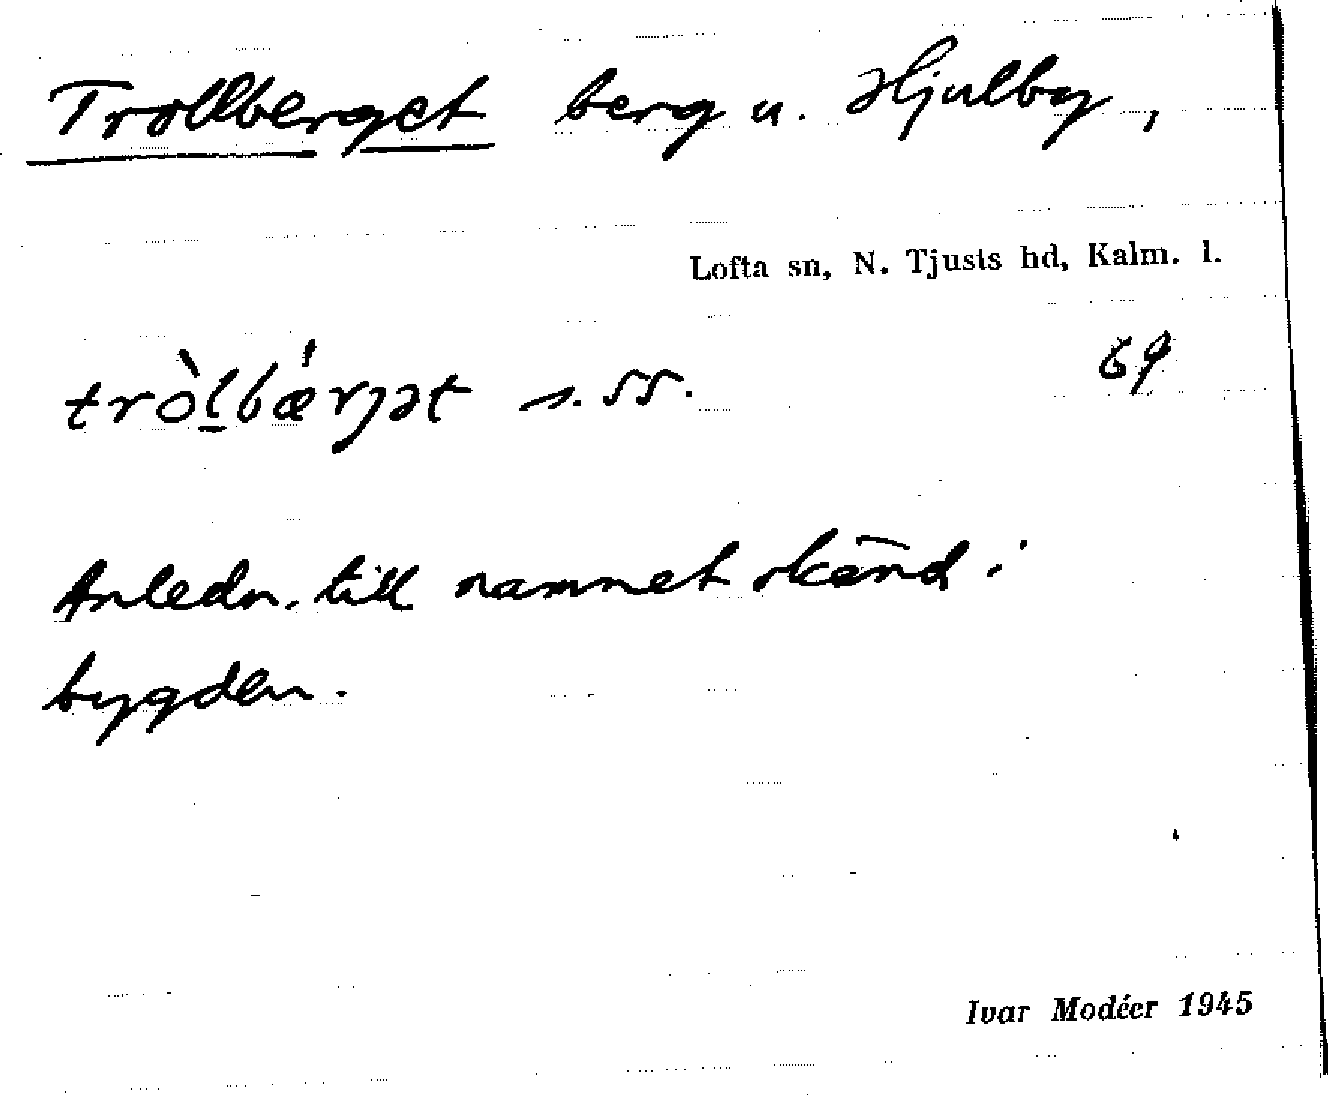 Trollberget berg u. Hjulby,
Lofta sn, N. Tjusts hd, Kalm. l.
tròl̠bǽrjət s. ss. 69
Anledn. till namnet okänd i
bygden.
Ivar Modéer 1945